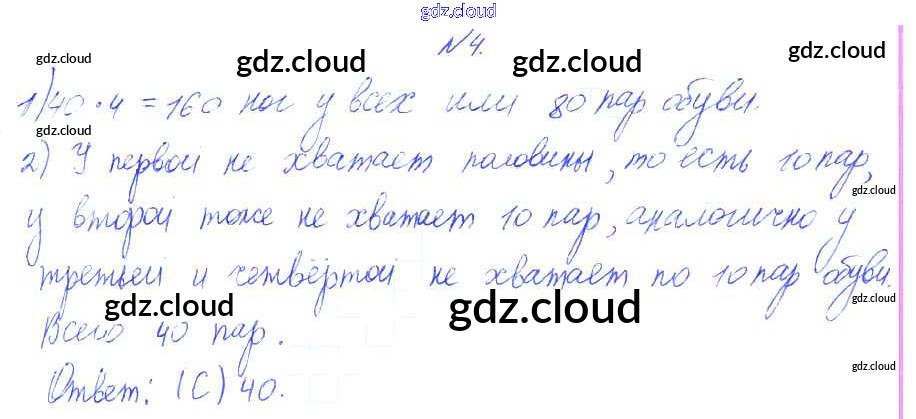 gdz.cloud
№4.
gdz.cloud gdz.cloud gdz.cloud gdz.cloud
1) 40 · 4 = 160 ног у всех или 80 пар обуви.
gdz.cloud gdz.cloud
2) У первой не хватает половины, то есть 10 пар,
gdz.cloud
у второй тоже не хватает 10 пар, аналогично у
третьей и четвёртой не хватает по 10 пар обуви.
gdz.cloud gdz.cloud gdz.cloud gdz.cloud
Всего 40 пар.
gdz.cloud
Ответ: (С) 40.